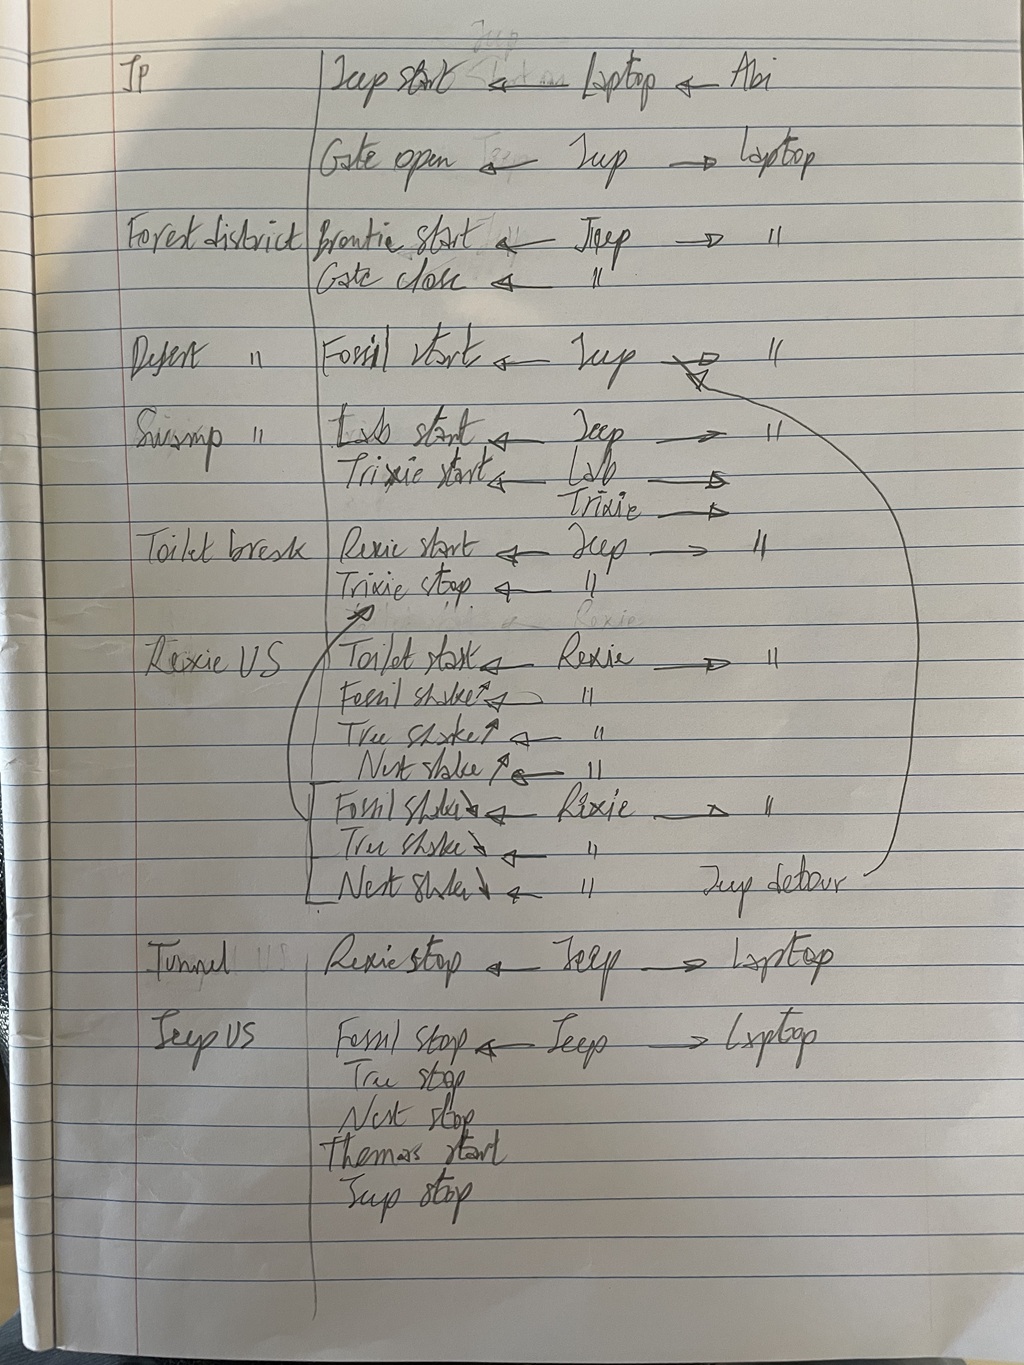 JP Jeep start ← Laptop ← Abi
Gate open ← Jeep → Laptop
Forest district Brontie start ← Jeep → "
Gate close ← "
Desert " Fossil start ← Jeep → "
Swamp " Lab start ← Jeep → "
Trixie start ← Lab →
Trixie →
Toilet break Rexie start ← Jeep → "
Trixie stop ← "
Rexie US Toilet start ← Rexie → "
Fossil shake ↑ ← "
Tree shake ↑ ← "
Nest shake ↑ ← "
Fossil shake ↓ ← Rexie → "
Tree shake ↓ ← "
Nest shake ↓ ← " Jeep detour
Tunnel Rexie stop ← Jeep → Laptop
Jeep US Fossil stop ← Jeep → Laptop
Tree stop
Nest stop
Thomas start
Jeep stop